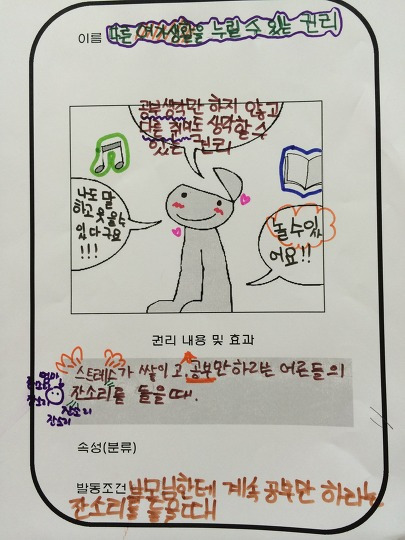 이름 다른 여가생활을 누릴 수 있는 권리
공부생각만 하지 않고
다른 취미도 생각할 수
있는 권리
나도 말
하고 웃을 수
있다구요
!!!
놀 수 있
어요!!
권리 내용 및 효과
스트레스가 쌓이고, 공부만 하라는 어른들의
잔소리를 들을 때.
엄마
잔소리
잔소리
잔소리
속성(분류)
발동조건 부모님한테 계속 공부만 하라는
잔소리를 들을때!